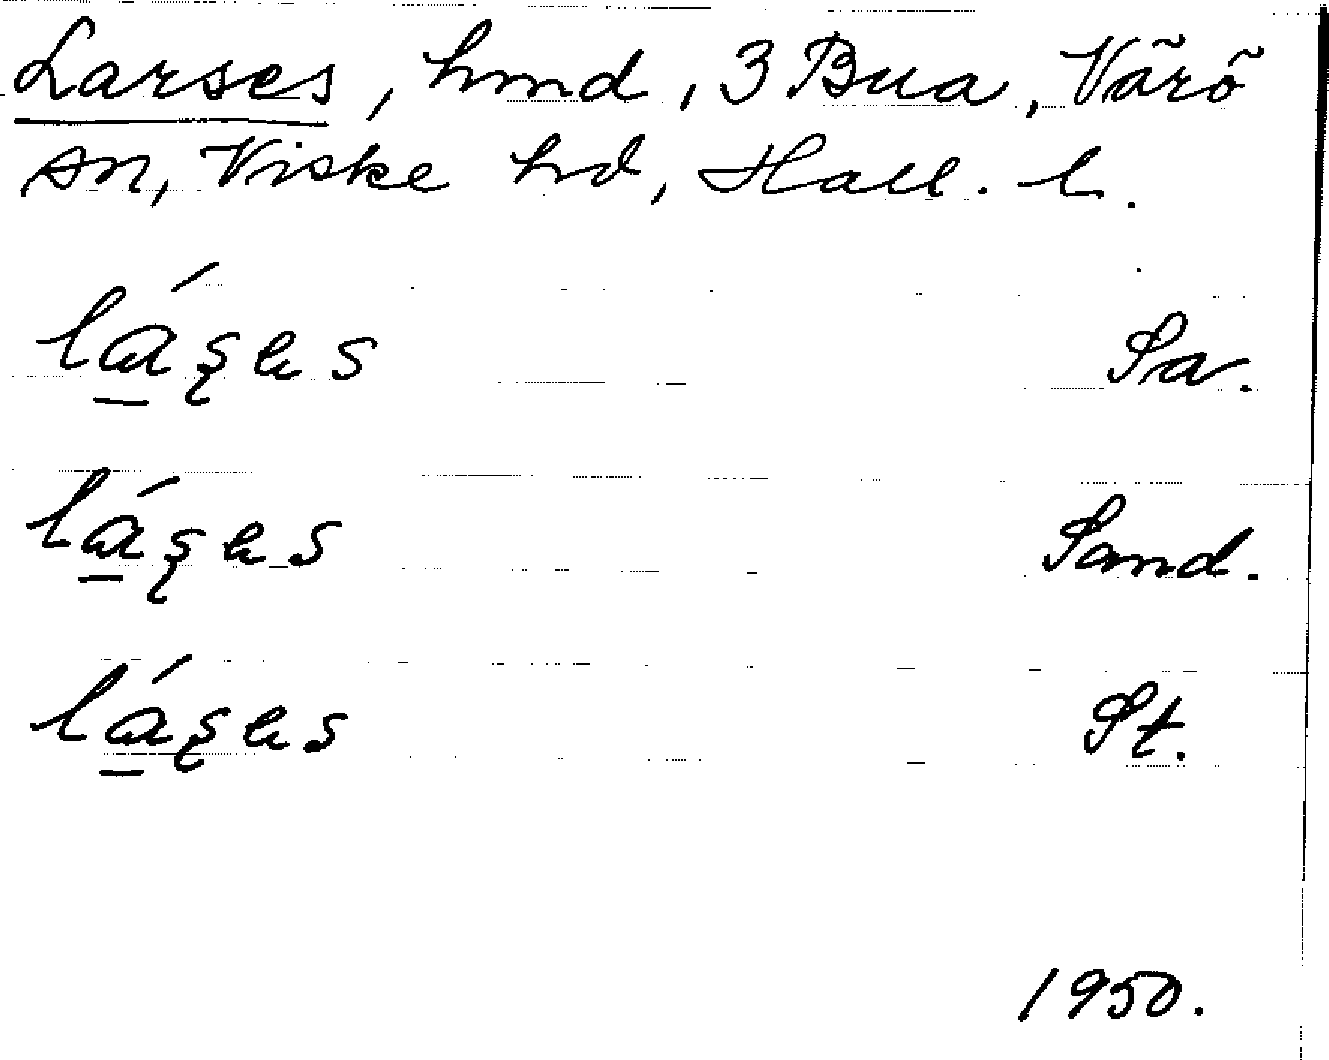 Larses, hmd, 3 Bua, Värö
sn, Viske hd, Hall. l.
lá̱ʂes Sa.
lá̱ʂes Sand.
lá̱ʂes St.
1950.